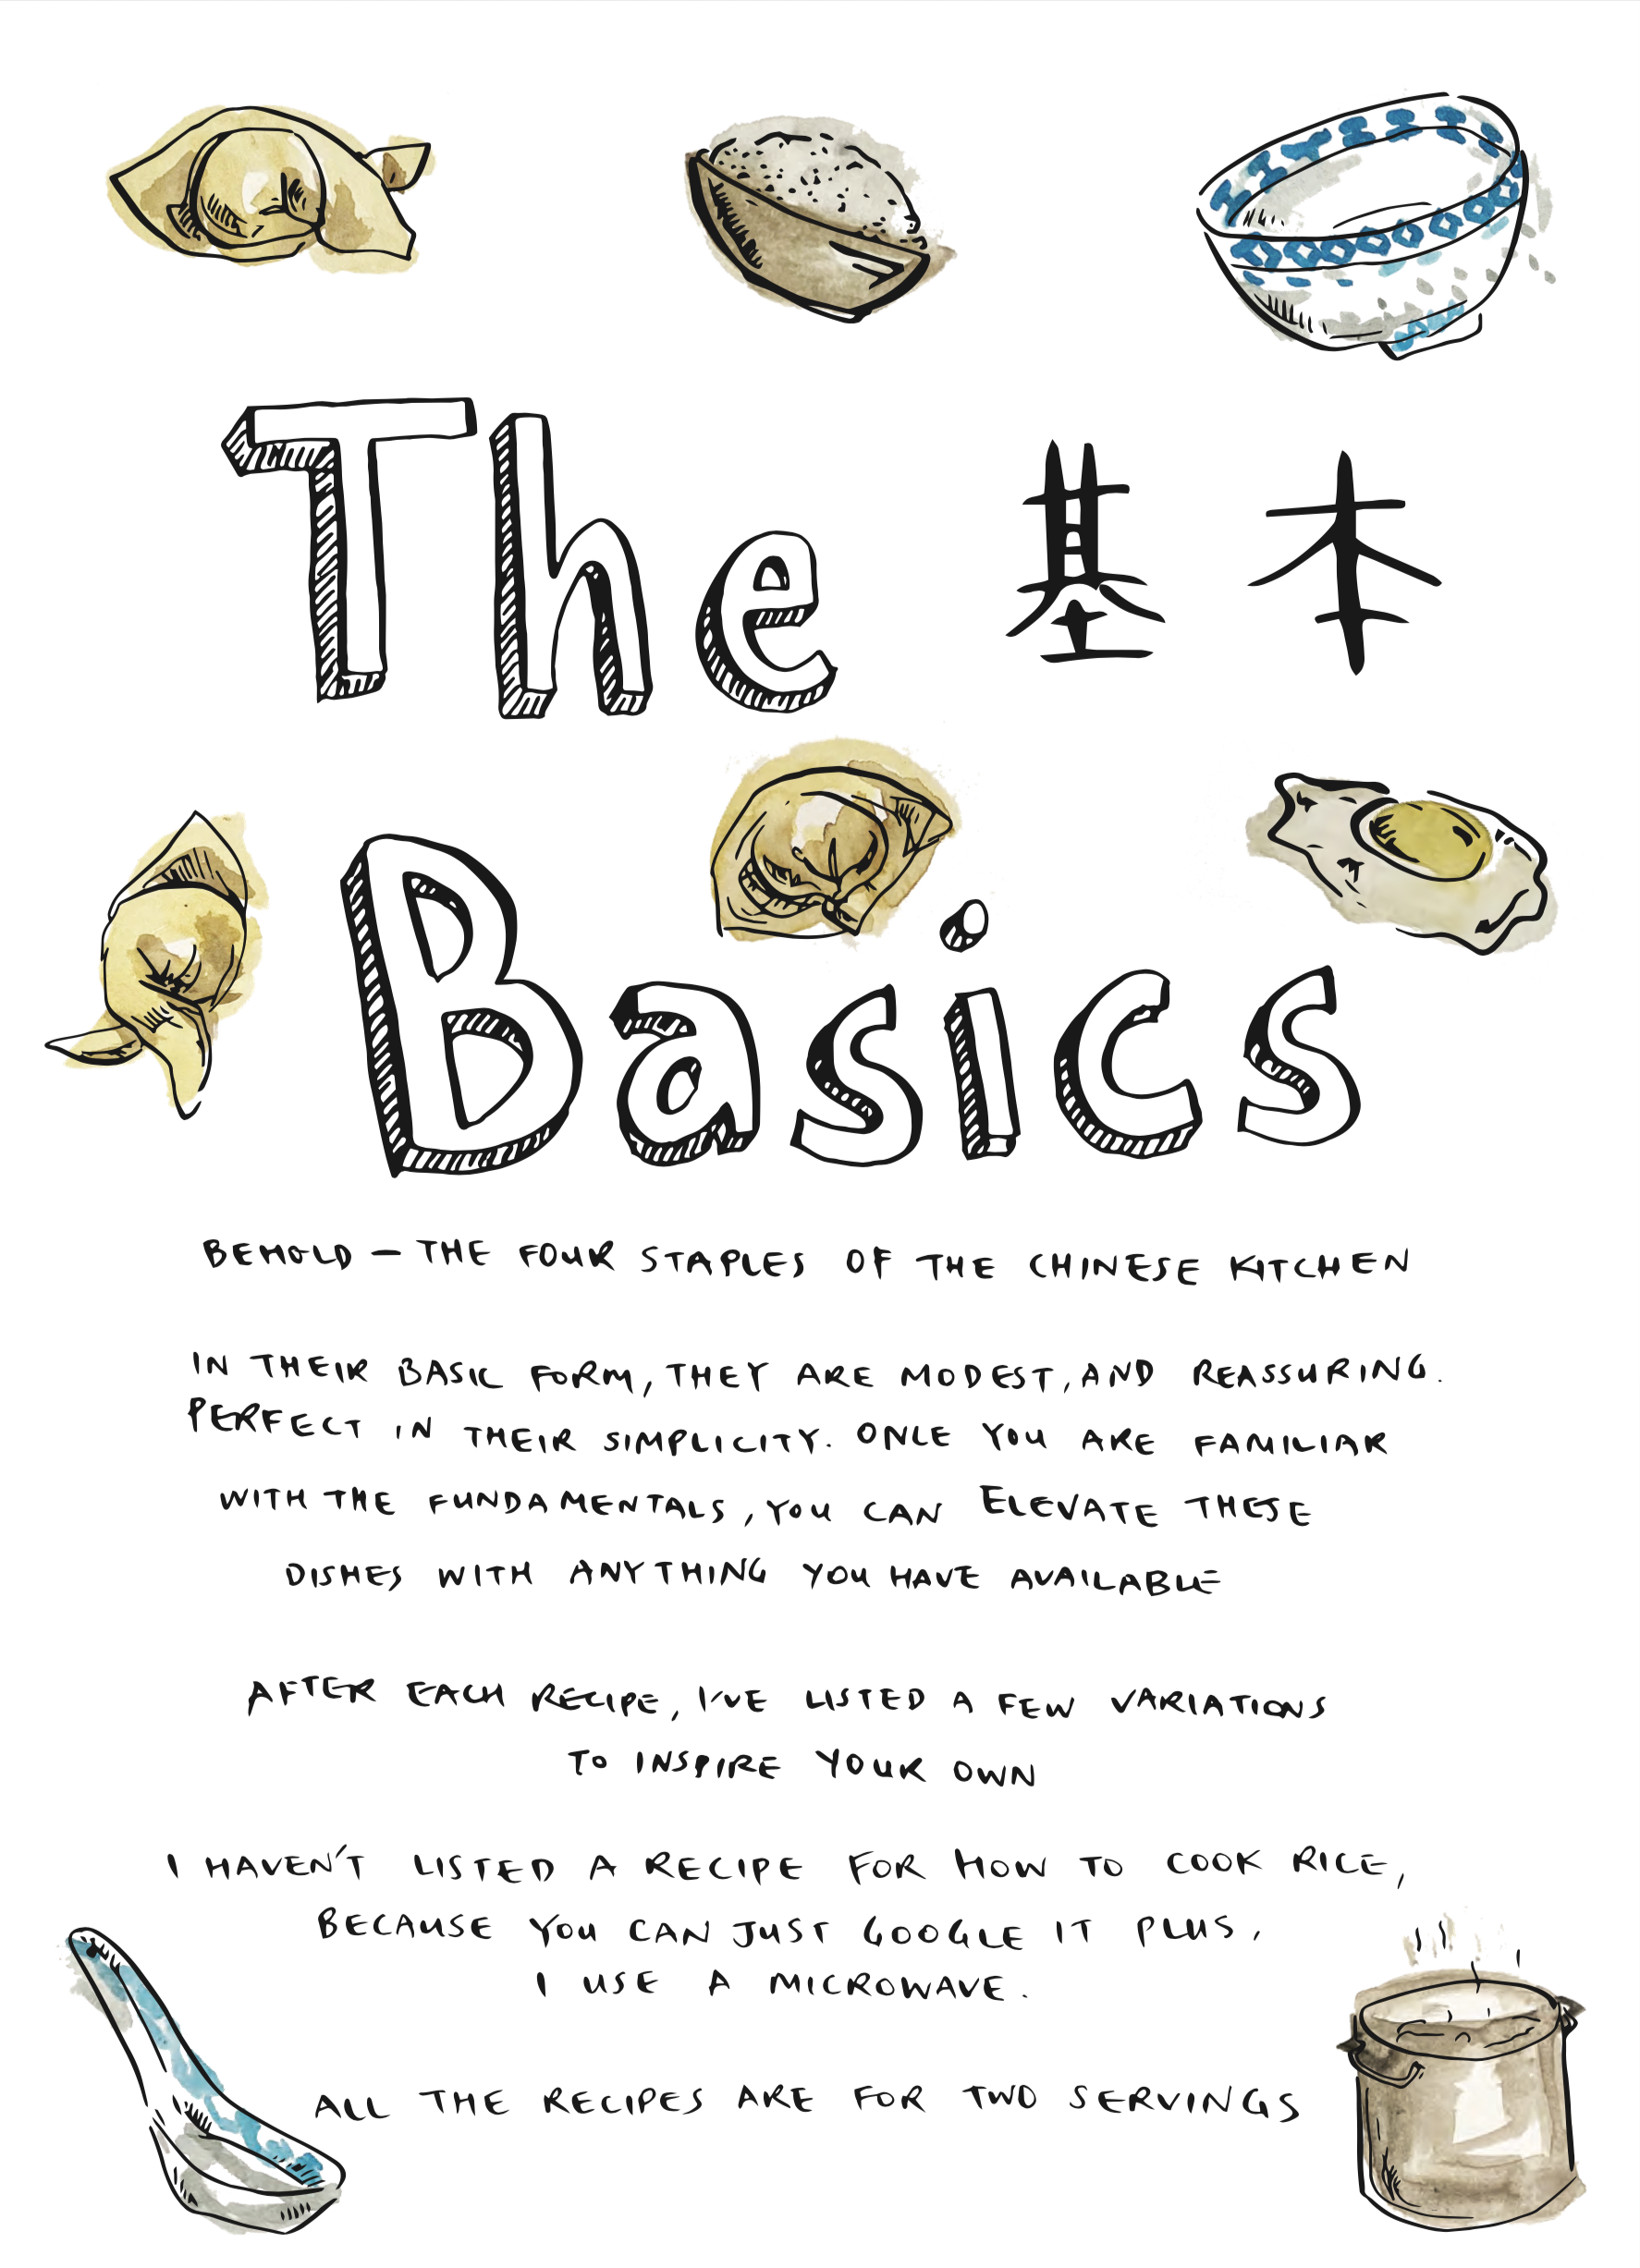 The 基本
Basics
BEHOLD – THE FOUR STAPLES OF THE CHINESE KITCHEN
IN THEIR BASIC FORM, THEY ARE MODEST, AND REASSURING.
PERFECT IN THEIR SIMPLICITY. ONCE YOU ARE FAMILIAR
WITH THE FUNDAMENTALS, YOU CAN ELEVATE THESE
DISHES WITH ANYTHING YOU HAVE AVAILABLE
AFTER EACH RECIPE, I'VE LISTED A FEW VARIATIONS
TO INSPIRE YOUR OWN
I HAVEN'T LISTED A RECIPE FOR HOW TO COOK RICE,
BECAUSE YOU CAN JUST GOOGLE IT PLUS,
I USE A MICROWAVE.
ALL THE RECIPES ARE FOR TWO SERVINGS